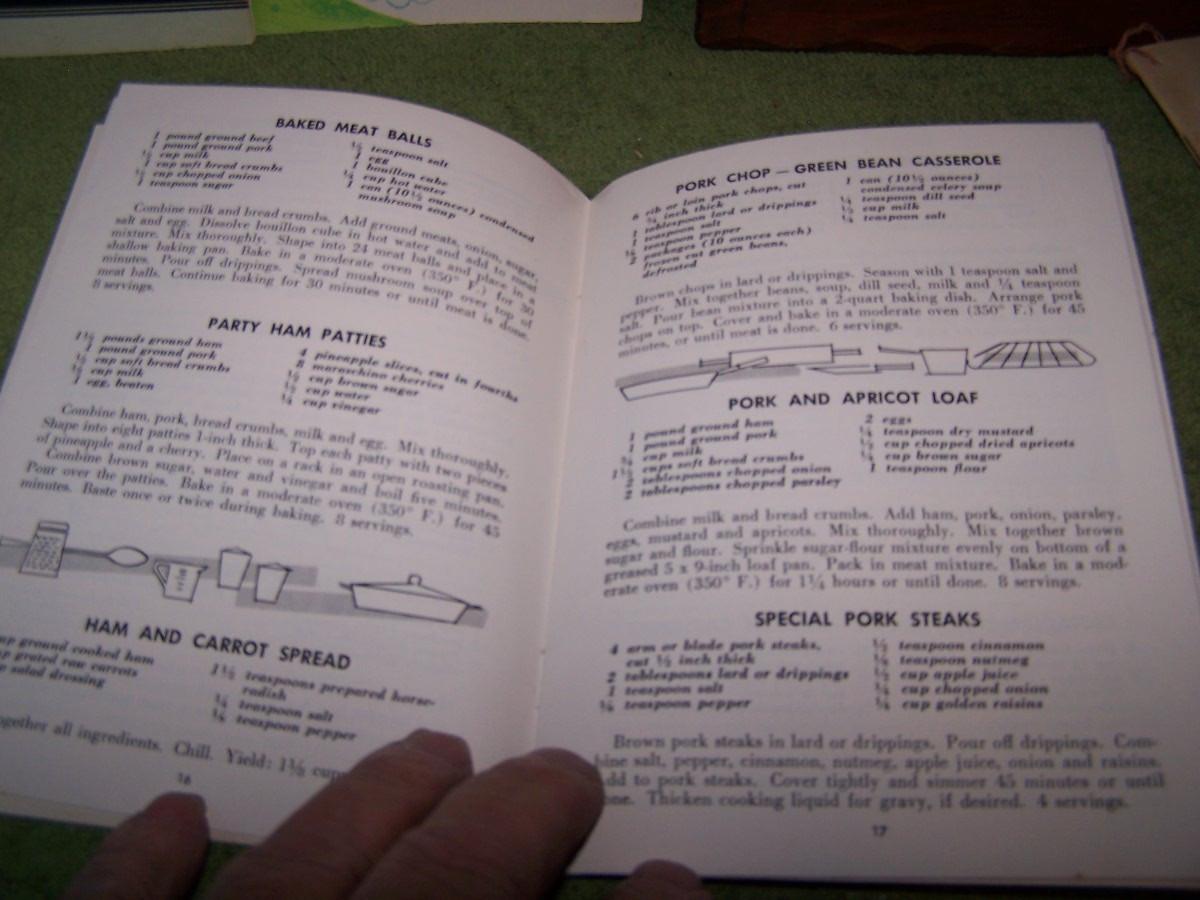 BAKED MEAT BALLS
1 pound ground beef
1 pound ground pork
cup milk
1 cup soft bread crumbs
cup chopped onion
1 teaspoon sugar
teaspoon salt
1 egg
1 bouillon cube
cup hot water
1 can (10½ ounces) condensed
mushroom soup
Combine milk and bread crumbs. Add ground meats, onion, sugar,
salt and egg. Dissolve bouillon cube in hot water and add to meat
mixture. Mix thoroughly. Shape into 24 meat balls and place in a
shallow baking pan. Bake in a moderate oven (350° F.) for 30
minutes. Pour off drippings. Spread mushroom soup over top of
meat balls. Continue baking for 30 minutes or until meat is done.
8 servings.
PARTY HAM PATTIES
1½ pounds ground ham
1 pound ground pork
cup soft bread crumbs
cup milk
1 egg, beaten
4 pineapple slices, cut in fourths
8 maraschino cherries
cup brown sugar
cup water
¼ cup vinegar
Combine ham, pork, bread crumbs, milk and egg. Mix thoroughly.
Shape into eight patties 1-inch thick. Top each patty with two pieces
of pineapple and a cherry. Place on a rack in an open roasting pan.
Combine brown sugar, water and vinegar and boil five minutes.
Pour over the patties. Bake in a moderate oven (350° F.) for 45
minutes. Baste once or twice during baking. 8 servings.
HAM AND CARROT SPREAD
ground cooked ham
grated raw carrots
salad dressing
1½ teaspoons prepared horse-
radish
¼ teaspoon salt
teaspoon pepper
together all ingredients. Chill. Yield:
16
PORK CHOP — GREEN BEAN CASSEROLE
6 rib or loin pork chops, cut
¾ inch thick
1 tablespoon lard or drippings
1 teaspoon salt
teaspoon pepper
2 packages (10 ounces each)
frozen cut green beans,
defrosted
1 can (10½ ounces)
condensed celery soup
¼ teaspoon dill seed
½ cup milk
¼ teaspoon salt
Brown chops in lard or drippings. Season with 1 teaspoon salt and
pepper. Mix together beans, soup, dill seed, milk and ¼ teaspoon
salt. Pour bean mixture into a 2-quart baking dish. Arrange pork
chops on top. Cover and bake in a moderate oven (350° F.) for 45
minutes, or until meat is done. 6 servings.
PORK AND APRICOT LOAF
1 pound ground ham
1 pound ground pork
¾ cup milk
1½ cups soft bread crumbs
2 tablespoons chopped onion
2 tablespoons chopped parsley
2 eggs
¼ teaspoon dry mustard
cup chopped dried apricots
cup brown sugar
1 teaspoon flour
Combine milk and bread crumbs. Add ham, pork, onion, parsley,
eggs, mustard and apricots. Mix thoroughly. Mix together brown
sugar and flour. Sprinkle sugar-flour mixture evenly on bottom of a
greased 5 x 9-inch loaf pan. Pack in meat mixture. Bake in a mod-
erate oven (350° F.) for 1¼ hours or until done. 8 servings.
SPECIAL PORK STEAKS
4 arm or blade pork steaks,
cut ½ inch thick
2 tablespoons lard or drippings
1 teaspoon salt
teaspoon pepper
teaspoon cinnamon
teaspoon nutmeg
cup apple juice
cup chopped onion
cup golden raisins
Brown pork steaks in lard or drippings. Pour off drippings. Com-
bine salt, pepper, cinnamon, nutmeg, apple juice, onion and raisins.
Add to pork steaks. Cover tightly and simmer 45 minutes or until
done. Thicken cooking liquid for gravy, if desired. 4 servings.
17